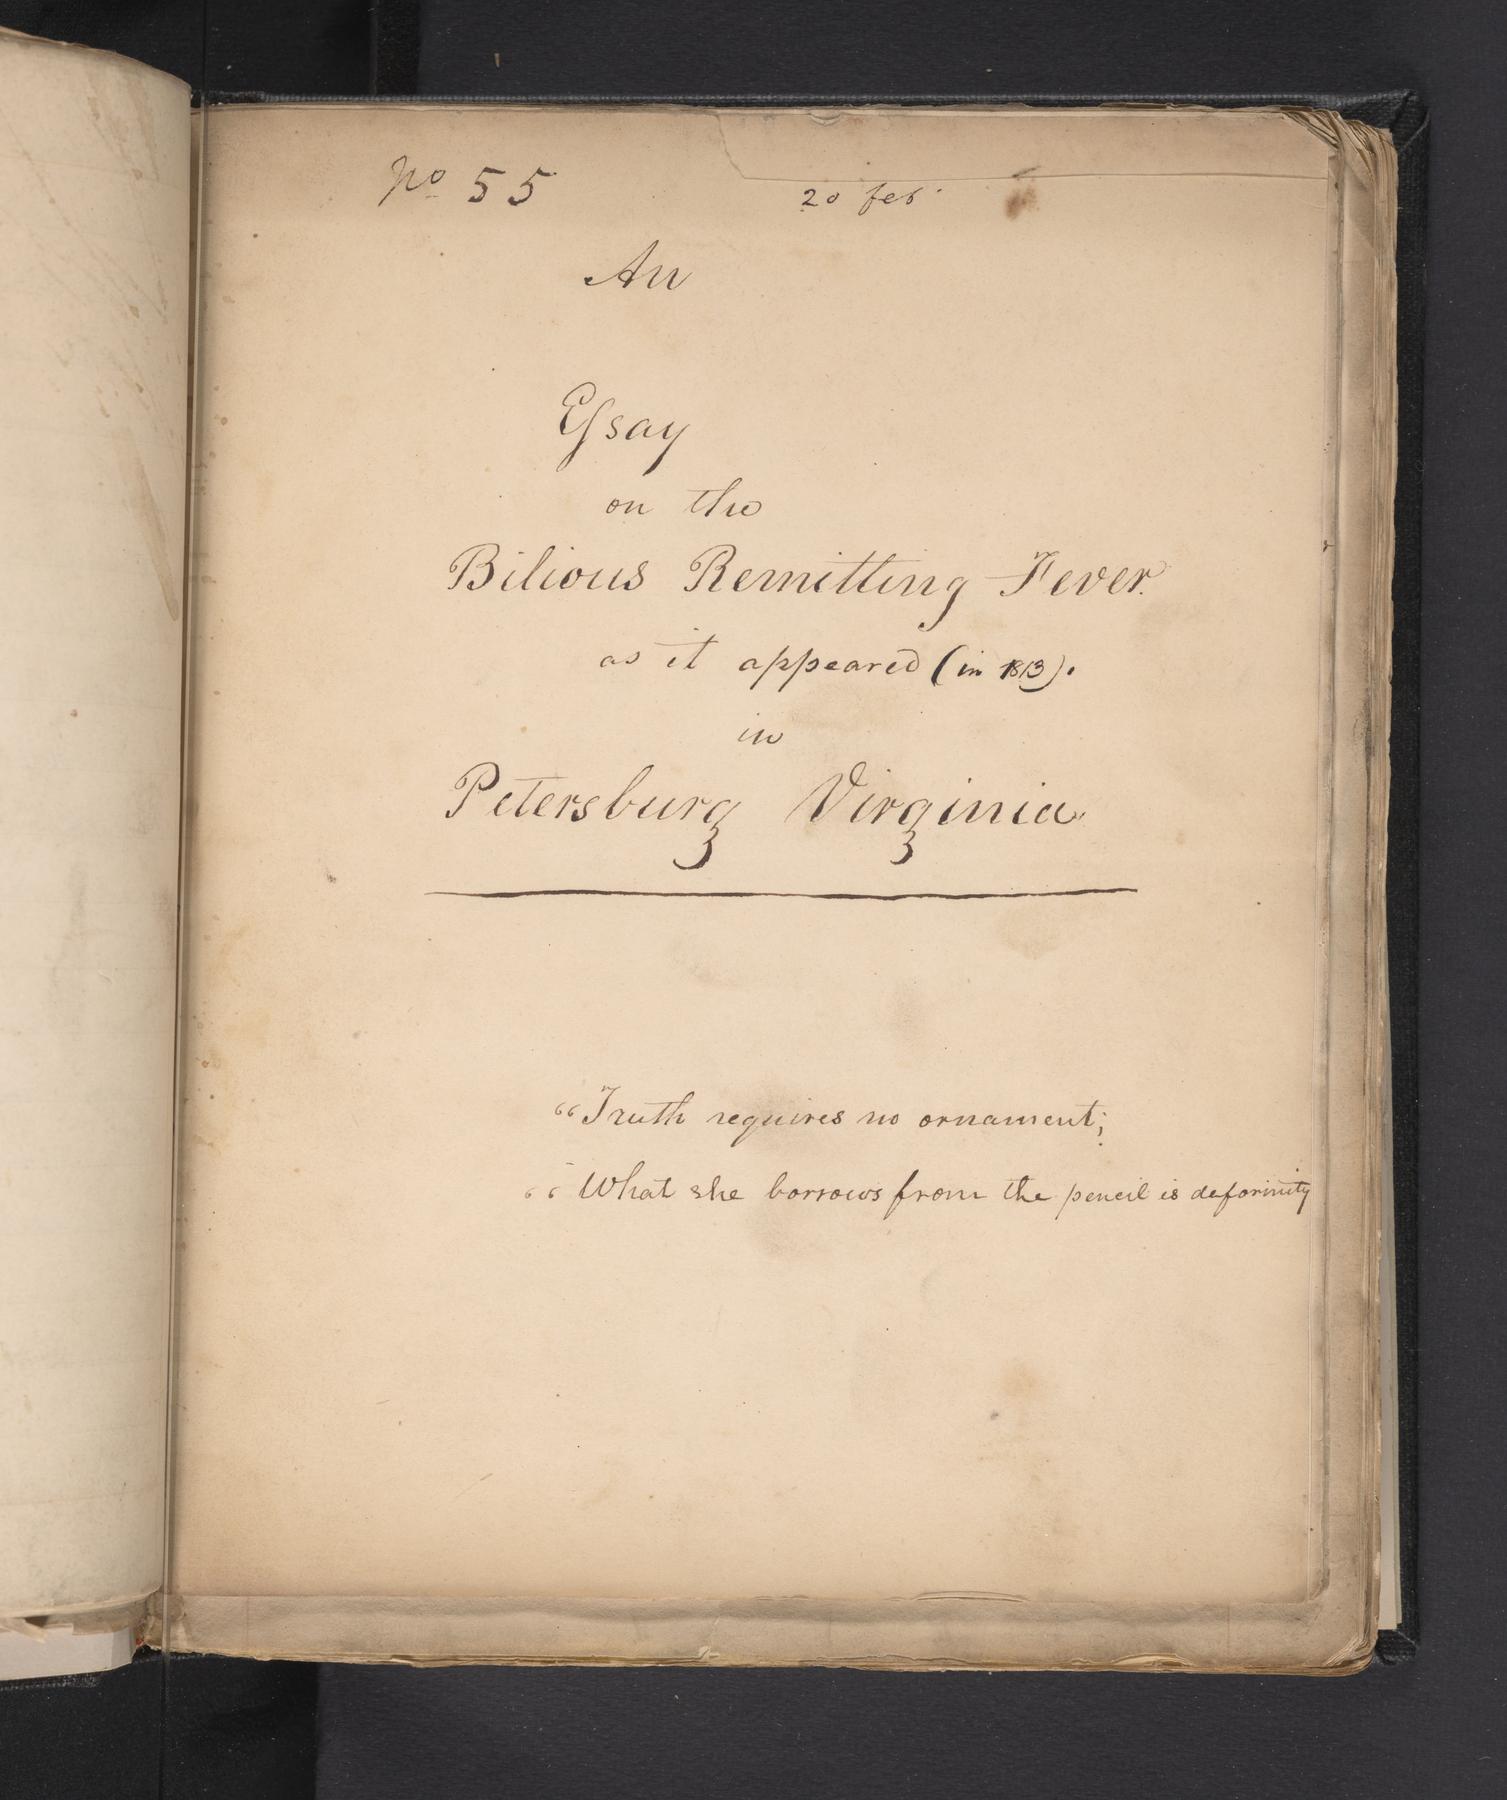 No 55 20 feb
An
Essay
on the
Bilious Remitting Fever.
as it appeared (in 1813).
in
Petersburg Virginia
"Truth requires no ornament;
"What she borrows from the pencil is deformity